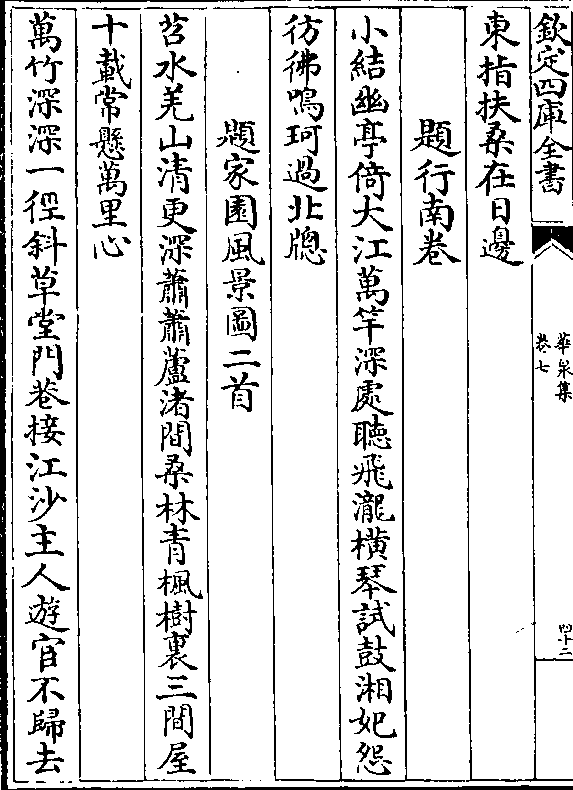 欽定四庫全書
華泉集
卷七
四十二
東指扶桑在日邊
題行南卷
小結幽亭倚大江萬竿深處聽飛瀧橫琴試鼓湘妃怨
彷彿鳴珂過北牕
題家園風景圖二首
苕水羌山清更深蕭蕭蘆渚間桑林青楓樹裏三間屋
十載常懸萬里心
萬竹深深一徑斜草堂門巷接江沙主人遊宦不歸去